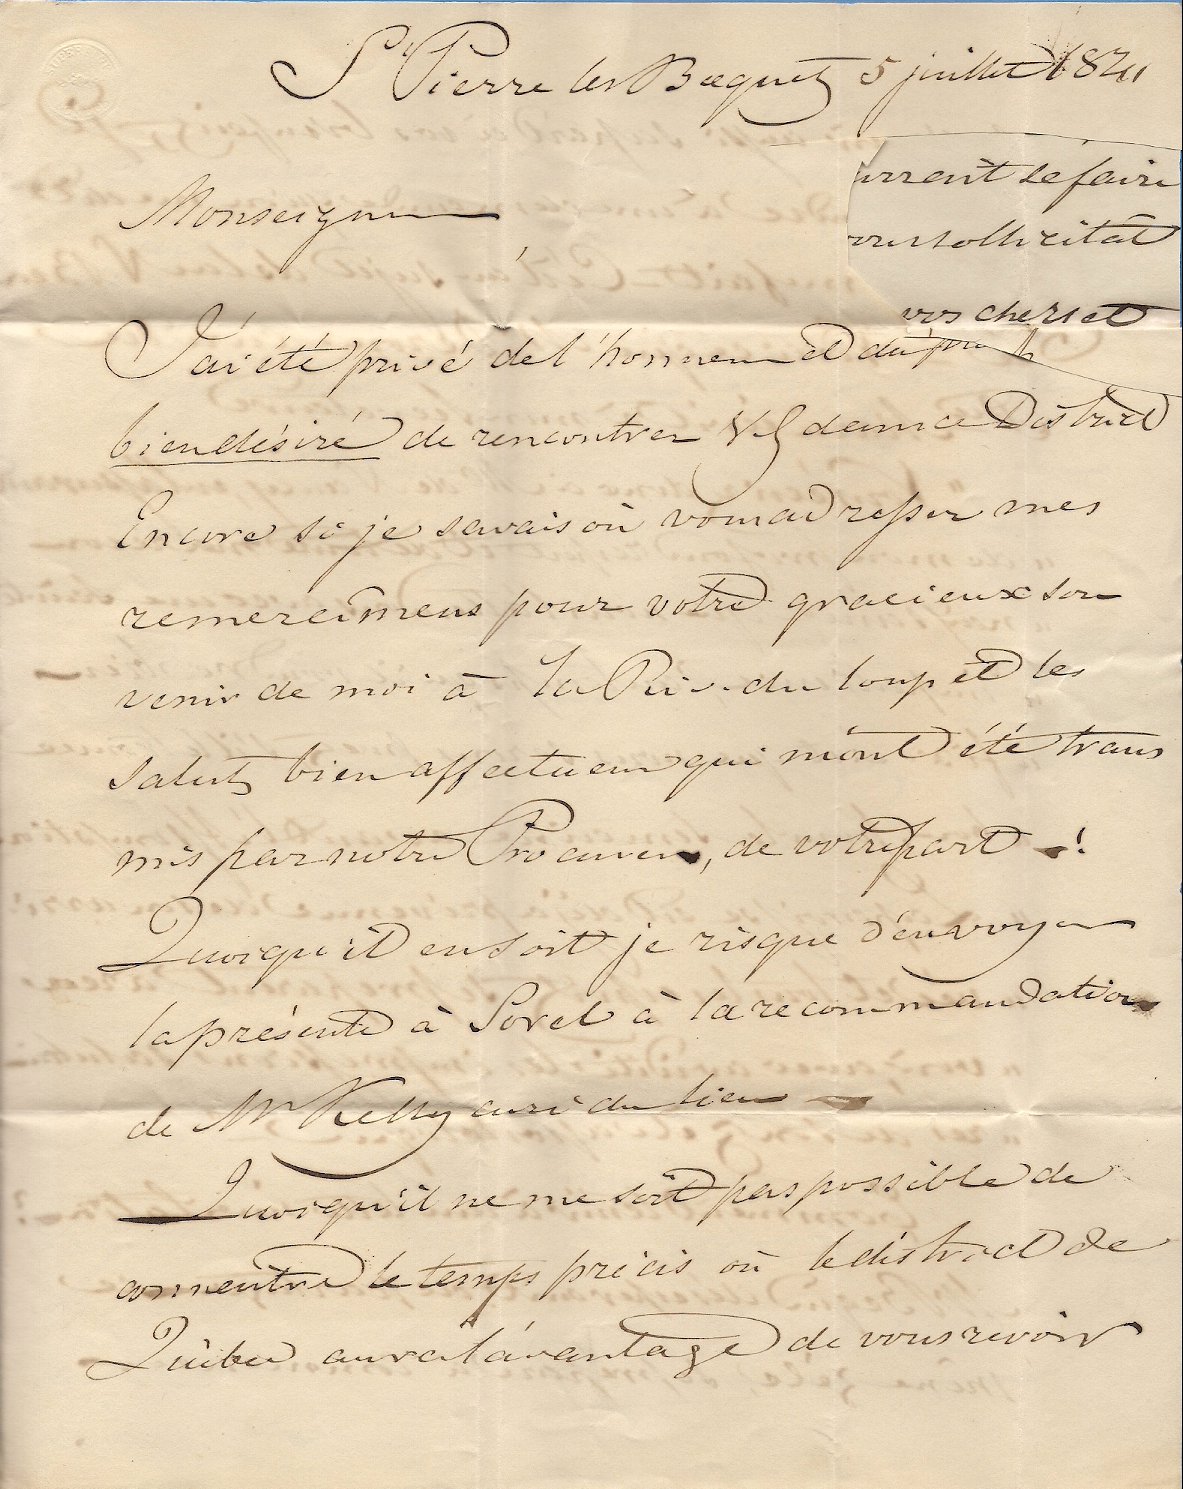 St Pierre les Becquets 5 juillet 1841
urront se faire
vous sollicitât
vos chers et
Monseigneur
J'ai été privé de l'honneur et du
bien désiré de rencontrer V G dans ce District
Encore si je savais où vous adresser mes
remercîmens pour votre gracieux sou
venir de moi à la Riv. du loup et les
saluts bien affectueux qui m'ont été trans
mis par notre Procureur, de votre part !
Quoiqu'il en soit je risque d'envoyer
la présente à Sorel à la recommandation
de Mr Kelly curé du lieu
Quoiqu'il ne me soit pas possible de
connaitre le temps précis où le district de
Québec aura l'avantage de vous revoir